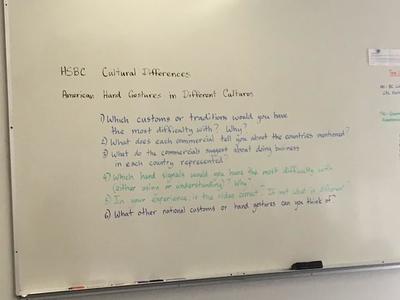 HSBC Cultural Differences
American Hand Gestures in Different Cultures
1) Which customs or traditions would you have
the most difficulty with? Why?
2) What does each commercial tell you about the countries mentioned?
3) What do the commercials suggest about doing business
in each country represented?
4) Which hand signals would you have the most difficulty with
(either using or understanding)? Why?
5) In your experience, is the video correct? If not what is different?
6) What other national customs or hand gestures can you think of?